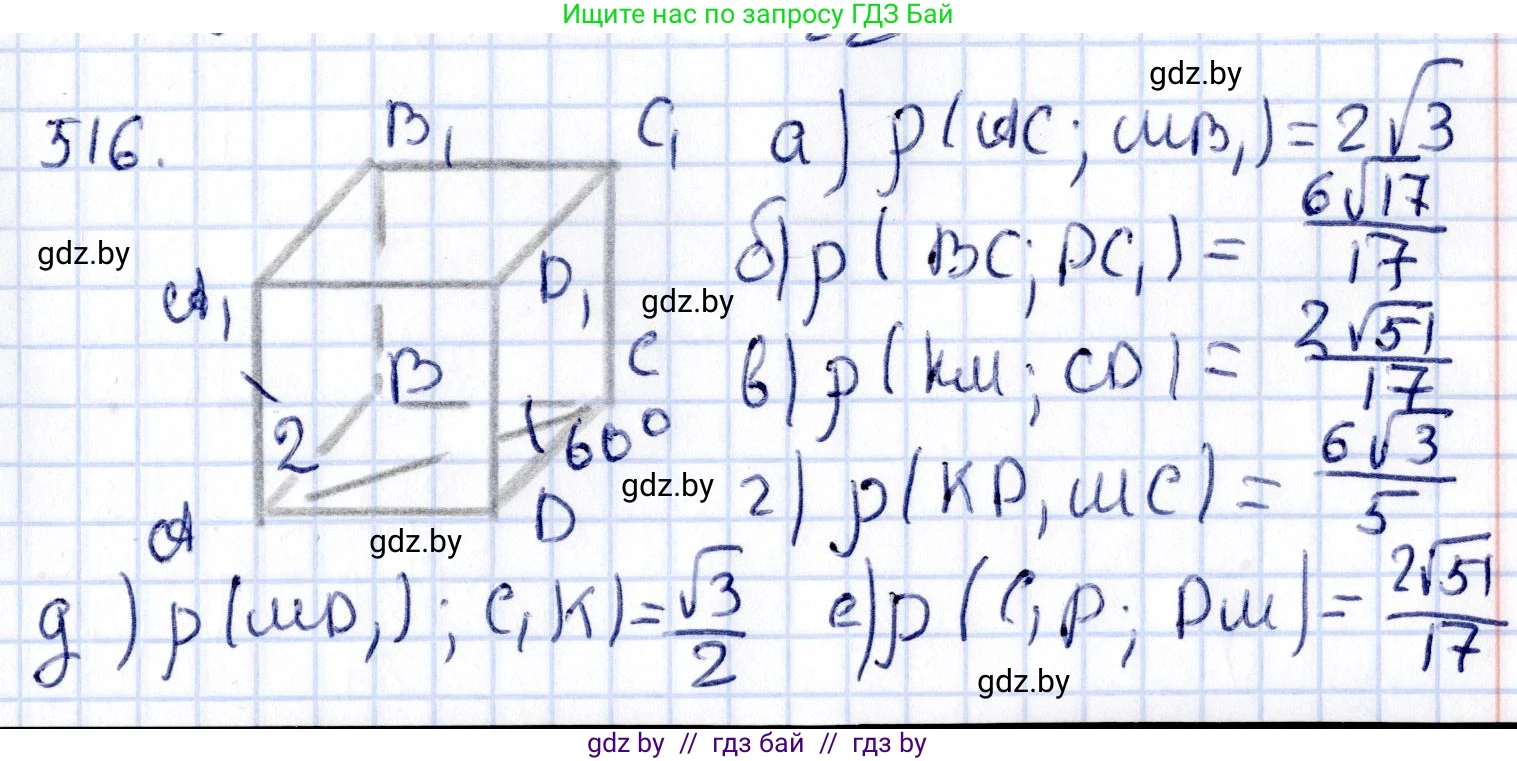 Ищите нас по запросу ГДЗ Бай
gdz.by
516.
B₁ C₁
а) ρ(AC; MB₁) = 2√3
gdz.by
A₁ D₁
б) ρ(BC; PC₁) = 6√17/17
gdz.by
B C
в) ρ(KM; CD) = 2√51/17
2 60°
gdz.by
A D
г) ρ(KP, MC) = 6√3/5
gdz.by
д) ρ(MD₁); C₁K) = √3/2
е) ρ(C₁P; DM) = 2√51/17
gdz.by
gdz by // гдз бай // гдз by